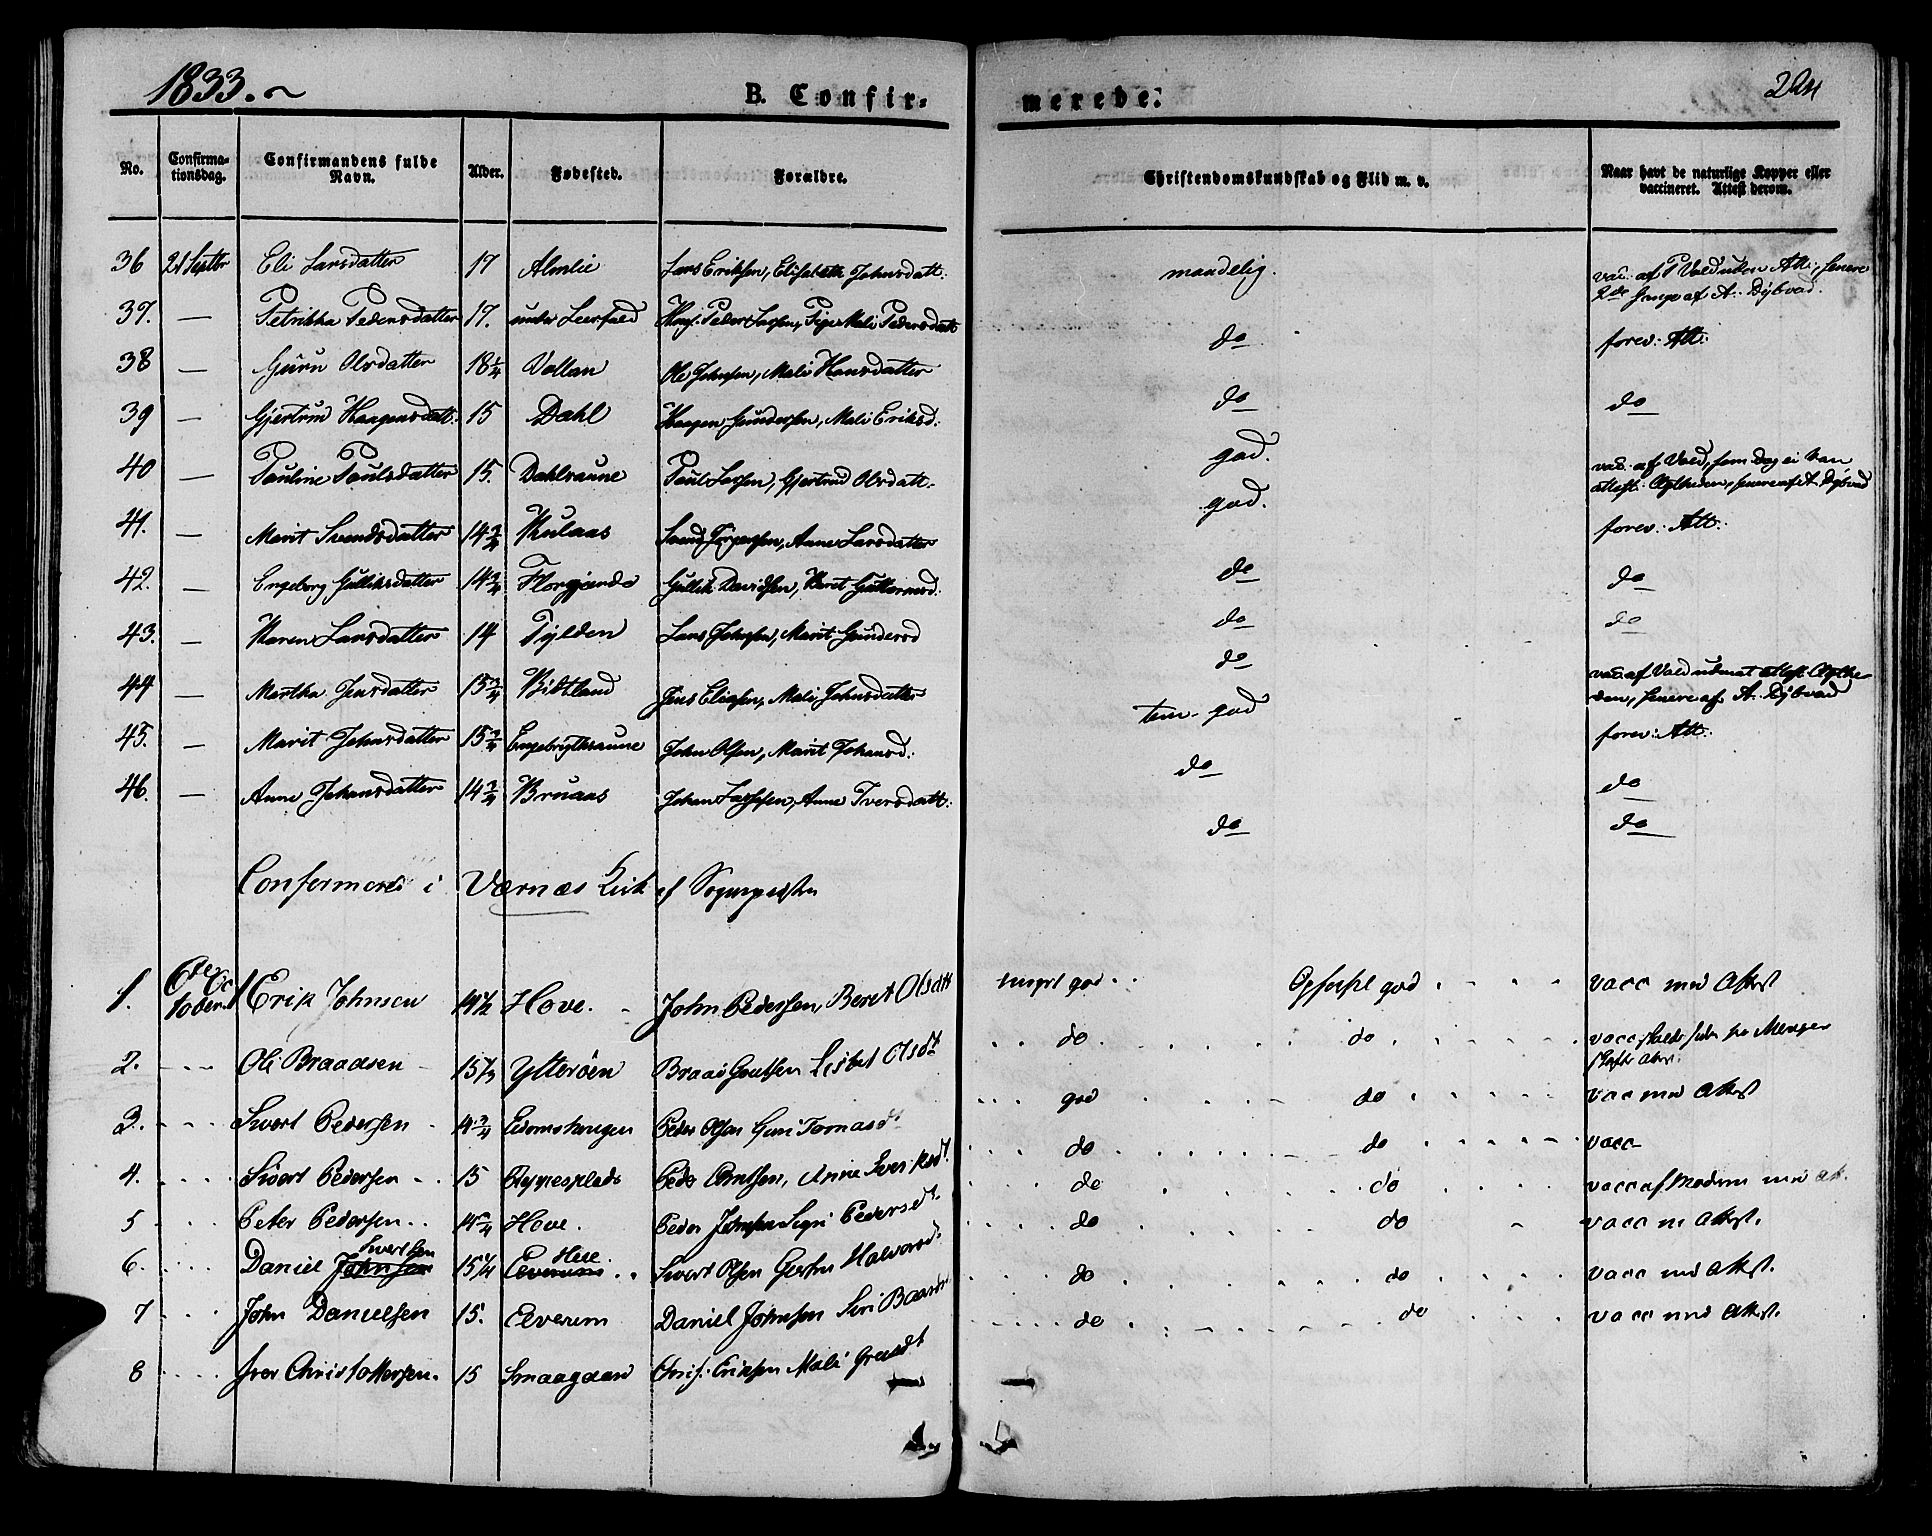 1833.
B. Confir-
merede.
224
No.
Confirma-
tionsdag.
Confirmandens fulde
Navn.
Alder.
Fødested.
Forældre.
Christendomskundskab og Flid m. v.
Naar havt de naturlige Kopper eller
vaccineret. Attest derom.
36 21 Septbr Eli Larsdatter 17 Almlie Lars Eriksen, Elisabeth Johnsdatt: maadelig. vac. af P Vold uden Att:, senere
2de Gange af A. Dybvad.
37. — Petrikka Pedersdatter 17. under Leerfald Peder Larsen, Pige Mali Pedersdatt do forev: Att:
38 — Guru Olsdatter 18 1/4 Vollan Ole Johnsen, Mali Hansdatter do do
39 — Gjertrud Haagensdatt: 15 Dahl Haagen Gundersen, Mali Eriksd: god. vac. af Vold, som dog ei kan
40 — Pauline Paulsdatter 15. Dahlsaune Paul Larsen, Gjertrud Olsdatt. god. attest: senere af A Dybvad
41. — Marit Svendsdatter 14 3/4 Kulaas Svend Anne Larsdatter do forev: Att:
42. — Engeborg Gulliksdatter 14 3/4 Gullik Davidsen, Beret Guttormsd: do do
43. — Karen Larsdatter 14 Tylden Lars Johnsen, Marit Gundersd do do
44 — Martha Jensdatter 15 3/4 Vidtland Jens Eliasen, Mali Johnsdatter tem. god vac. af Vold
den, senere af A. Dybvad
45. — Marit Johnsdatter 15 3/4 Engebrigtsaune John Olsen, Marit Johansd: do forev: Att:
46. — Anne Johansdatter 14 3/4 Bruaas Johan Larsen, Anne Iversdatt: do do
do
Confermerede i Værnæs Kirk af Sogneprästen
1. 6te Oc
tober Erik Johnsen 14 1/2 Hove. John Pedersen, Beret Olsdtt meget god Opførsel god vacc med Attest
2. Ole Braadsen 15 1/3 Ytterøen Lisbet Olsdt do do vacc
3. Sivert Pedersen 14 3/4 Peder Olsen Guri Tomasdt god do vacc med Attest
4. Sivert Pedersen 15 Reppesplads Peder Arntsen, Anne do do vacc
5 Peter Pedersen 14 3/4 Hove. Peder Johnsen Sigri Pedersdt. do do vacc af Moderen med at.
6. Daniel Johnsen Sivertsen 15 1/4 Elverum Hell Sivert Olsen Halvorsd. do do vacc m Attest.
7 John Danielsen 15. Elverum Daniel Johnsen Siri do do vacc med Attest.
8 Iver Christoffersen. 15 Smaagaan Chris: Eriksen Mali do do vacc med Attest.